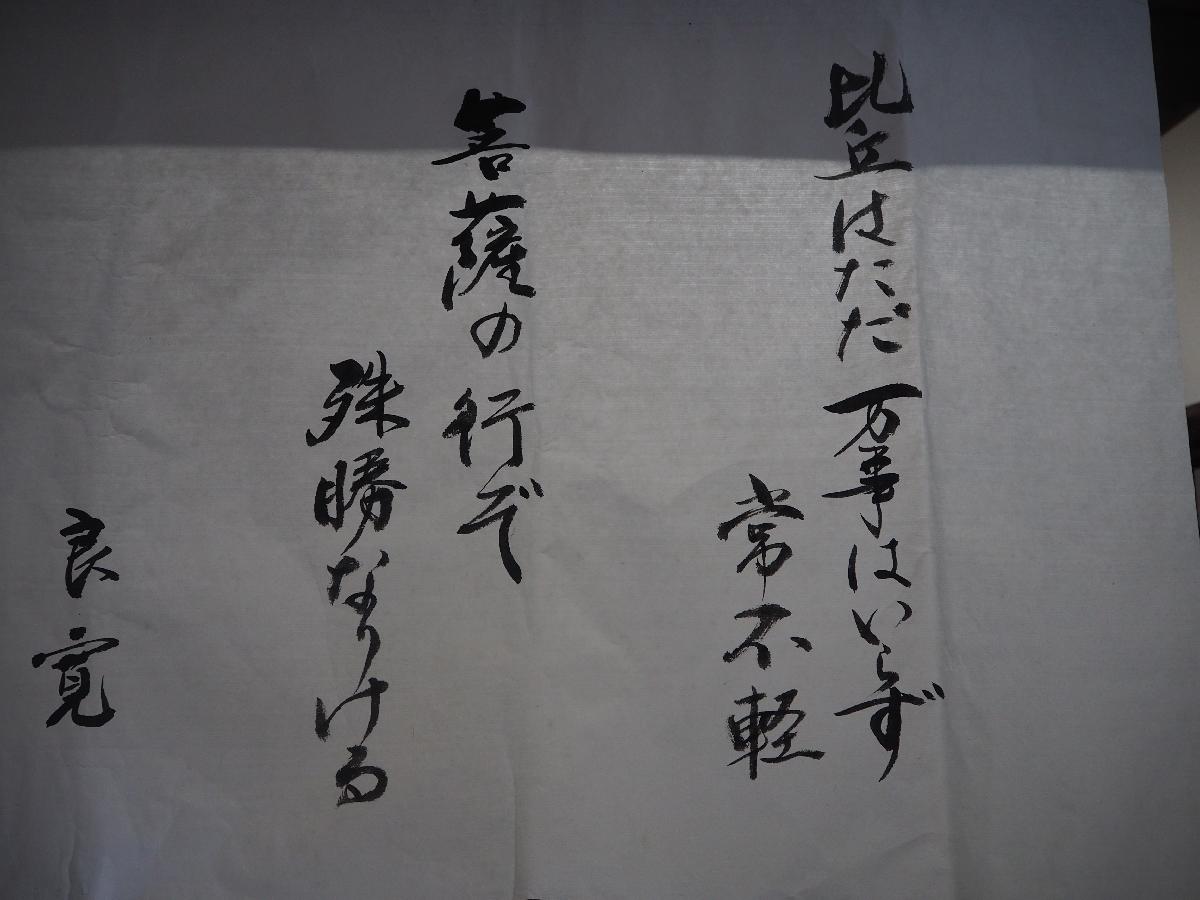 比丘はただ万事はいらず
常不軽
菩薩の行ぞ
殊勝なりける
良寛